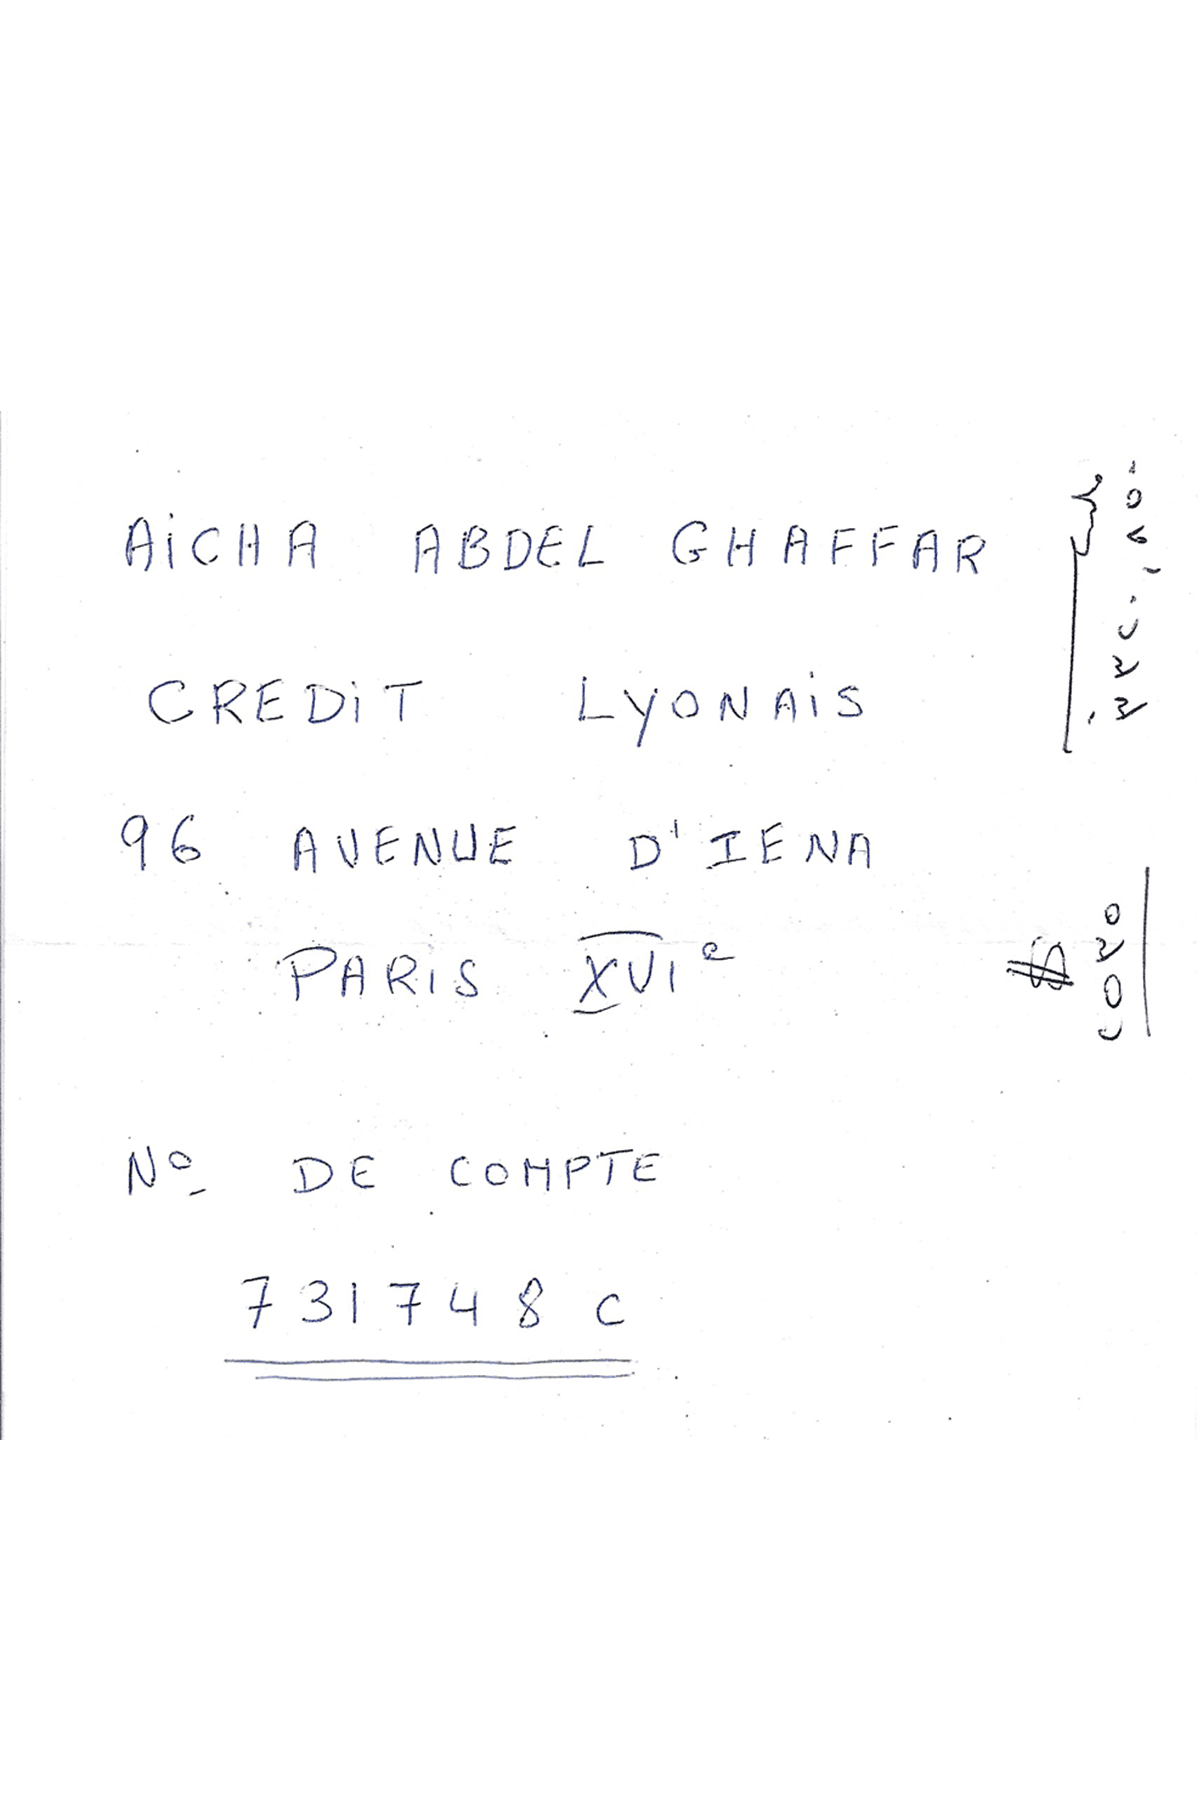 AiCHA ABDEL GHAFFAR
CREDiT LYONAiS
96 AVENUE D'IENA
PARIS XVIe
No DE COMPTE
731748 C